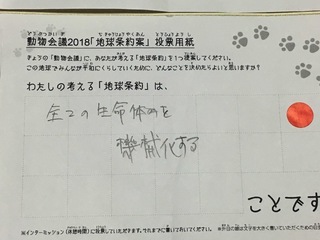 動物会議2018「地球条約案」投票用紙
きょうの「動物会議」に、あなたが考える「地球条約」を1つ提案してください。
この地球でみんなが平和にくらしていくために、どんなことを決めたらよいと思いますか?
わたしの考える「地球条約」は、
全ての生命体を
機械化する
ことです
※インターミッション(休憩時間)に投票していただきます。それまでに書いておいてください。